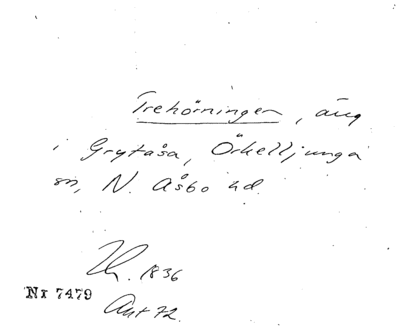 Trehörningen, äng
i Grytåsa, Örkelljunga
sn, N. Åsbo hd.
1836
Nr 7479